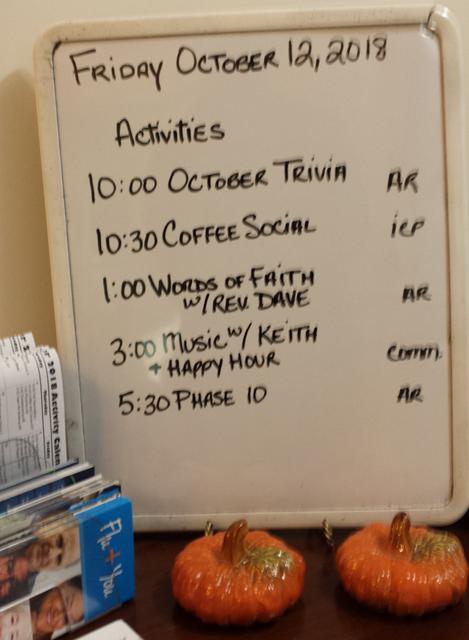 FRIDAY OCTOBER 12, 2018
Activities
10:00 OCTOBER TRIVIA AR
10:30 COFFEE SOCIAL ICP
1:00 WORDS OF FAITH
w/REV. DAVE AR
3:00 Music w/ KEITH
+ HAPPY HOUR Comm.
5:30 PHASE 10 AR
2018 Activity Calen
Flu + You